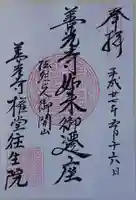 奉拝
平成廿七年五月十六日
善光寺如来御遷座
弘法大師開山
善光寺権堂往生院